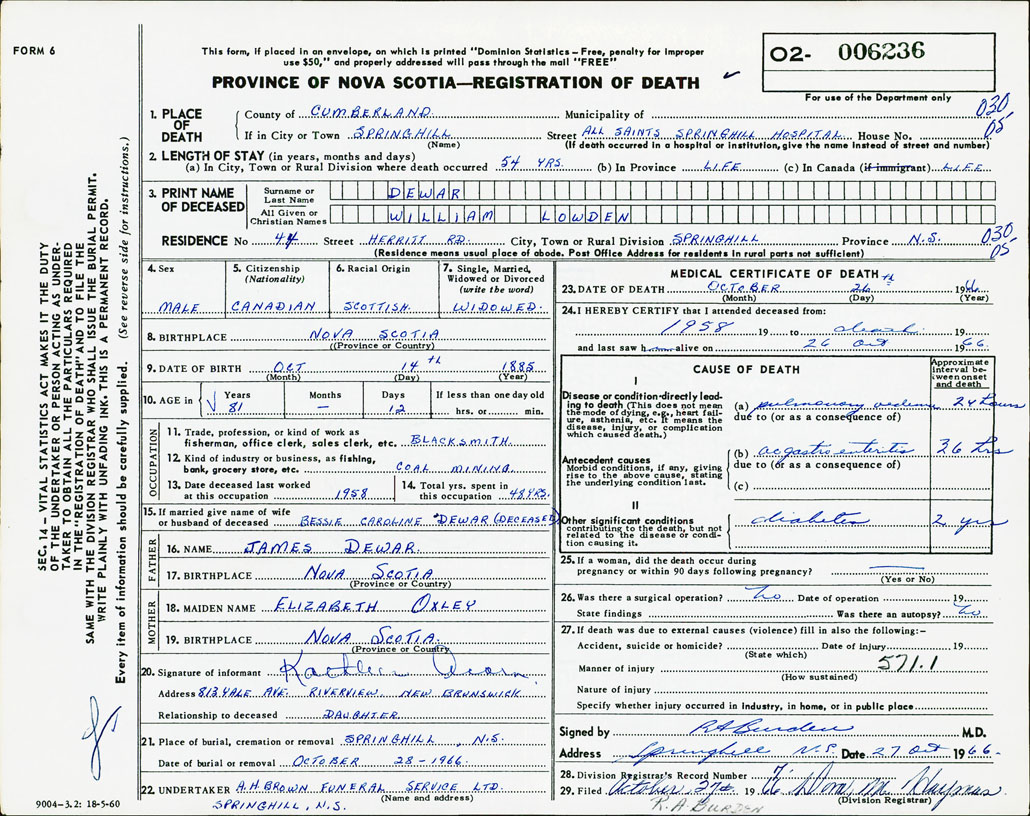 FORM 6
This form, if placed in an envelope, on which is printed "Dominion Statistics – Free, penalty for improper
use $50," and properly addressed will pass through the mail "FREE"
PROVINCE OF NOVA SCOTIA—REGISTRATION OF DEATH
O2- 006236
For use of the Department only
SEC. 14 – VITAL STATISTICS ACT MAKES IT THE DUTY
OF THE UNDERTAKER OR PERSON ACTING AS UNDER-
TAKER TO OBTAIN ALL THE PARTICULARS REQUIRED
IN THE "REGISTRATION OF DEATH" AND TO FILE THE
SAME WITH THE DIVISION REGISTRAR WHO SHALL ISSUE THE BURIAL PERMIT.
WRITE PLAINLY WITH UNFADING INK. THIS IS A PERMANENT RECORD.
Every item of information should be carefully supplied. (See reverse side for instructions.)
9004–3.2: 18-5-60
1. PLACE OF DEATH
County of CUMBERLAND Municipality of 030
If in City or Town SPRINGHILL Street ALL SAINTS SPRINGHILL HOSPITAL House No. 05
(Name) (If death occurred in a hospital or institution, give the name instead of street and number)
2. LENGTH OF STAY (in years, months and days)
(a) In City, Town or Rural Division where death occurred 54 YRS. (b) In Province LIFE (c) In Canada (if immigrant) LIFE
3. PRINT NAME OF DECEASED
Surname or Last Name DEWAR
All Given or Christian Names WILLIAM LOWDEN
RESIDENCE No 44 Street HERRITT RD. City, Town or Rural Division SPRINGHILL Province N.S. 030 05
(Residence means usual place of abode. Post Office Address for residents in rural parts not sufficient)
4. Sex MALE
5. Citizenship (Nationality) CANADIAN
6. Racial Origin SCOTTISH
7. Single, Married, Widowed or Divorced (write the word) WIDOWED.
8. BIRTHPLACE NOVA SCOTIA
(Province or Country)
9. DATE OF BIRTH OCT 14th 1885
(Month) (Day) (Year)
10. AGE in Years 81 Months — Days 12 If less than one day old hrs. or min.
OCCUPATION
11. Trade, profession, or kind of work as
fisherman, office clerk, sales clerk, etc. BLACKSMITH
12. Kind of industry or business, as fishing,
bank, grocery store, etc. COAL MINING
13. Date deceased last worked
at this occupation 1958
14. Total yrs. spent in
this occupation 48 YRS.
15. If married give name of wife
or husband of deceased BESSIE CAROLINE DEWAR (DECEASED)
FATHER
16. NAME JAMES DEWAR.
17. BIRTHPLACE NOVA SCOTIA
(Province or Country)
MOTHER
18. MAIDEN NAME ELIZABETH OXLEY
19. BIRTHPLACE NOVA SCOTIA.
(Province or Country)
20. Signature of informant Kathleen
Address 813 YALE AVE. RIVERVIEW NEW BRUNSWICK
Relationship to deceased DAUGHTER
21. Place of burial, cremation or removal SPRINGHILL, N.S.
Date of burial or removal OCTOBER 28 - 1966.
22. UNDERTAKER A.H. BROWN FUNERAL SERVICE LTD.
(Name and address)
SPRINGHILL, N.S.
MEDICAL CERTIFICATE OF DEATH
23. DATE OF DEATH OCTOBER 26th 1966
(Month) (Day) (Year)
24. I HEREBY CERTIFY that I attended deceased from:
1958 19 to death 19
and last saw h alive on 26 Oct 1966.
CAUSE OF DEATH
Approximate interval between onset and death
I
Disease or condition directly lead-
ing to death (This does not mean
the mode of dying, e.g., heart fail-
ure, asthenia, etc. It means the
disease, injury, or complication
which caused death.)
(a) pulmonary oedema 24 hours
due to (or as a consequence of)
Antecedent causes
Morbid conditions, if any, giving
rise to the above cause, stating
the underlying condition last.
(b) ac gastro enteritis 36 hrs
due to (or as a consequence of)
(c)
II
Other significant conditions
contributing to the death, but not
related to the disease or condi-
tion causing it.
diabetes 2 yrs
25. If a woman, did the death occur during
pregnancy or within 90 days following pregnancy? —
(Yes or No)
26. Was there a surgical operation? no Date of operation 19
State findings Was there an autopsy? no
27. If death was due to external causes (violence) fill in also the following:–
Accident, suicide or homicide? Date of injury 19
(State which)
571.1
Manner of injury
(How sustained)
Nature of injury
Specify whether injury occurred in industry, in home, or in public place
Signed by RA Burden M.D.
Address Springhill N.S. Date 27 Oct 1966.
28. Division Registrar's Record Number
29. Filed October 27th 1966
(Division Registrar)
R.A. BURDEN